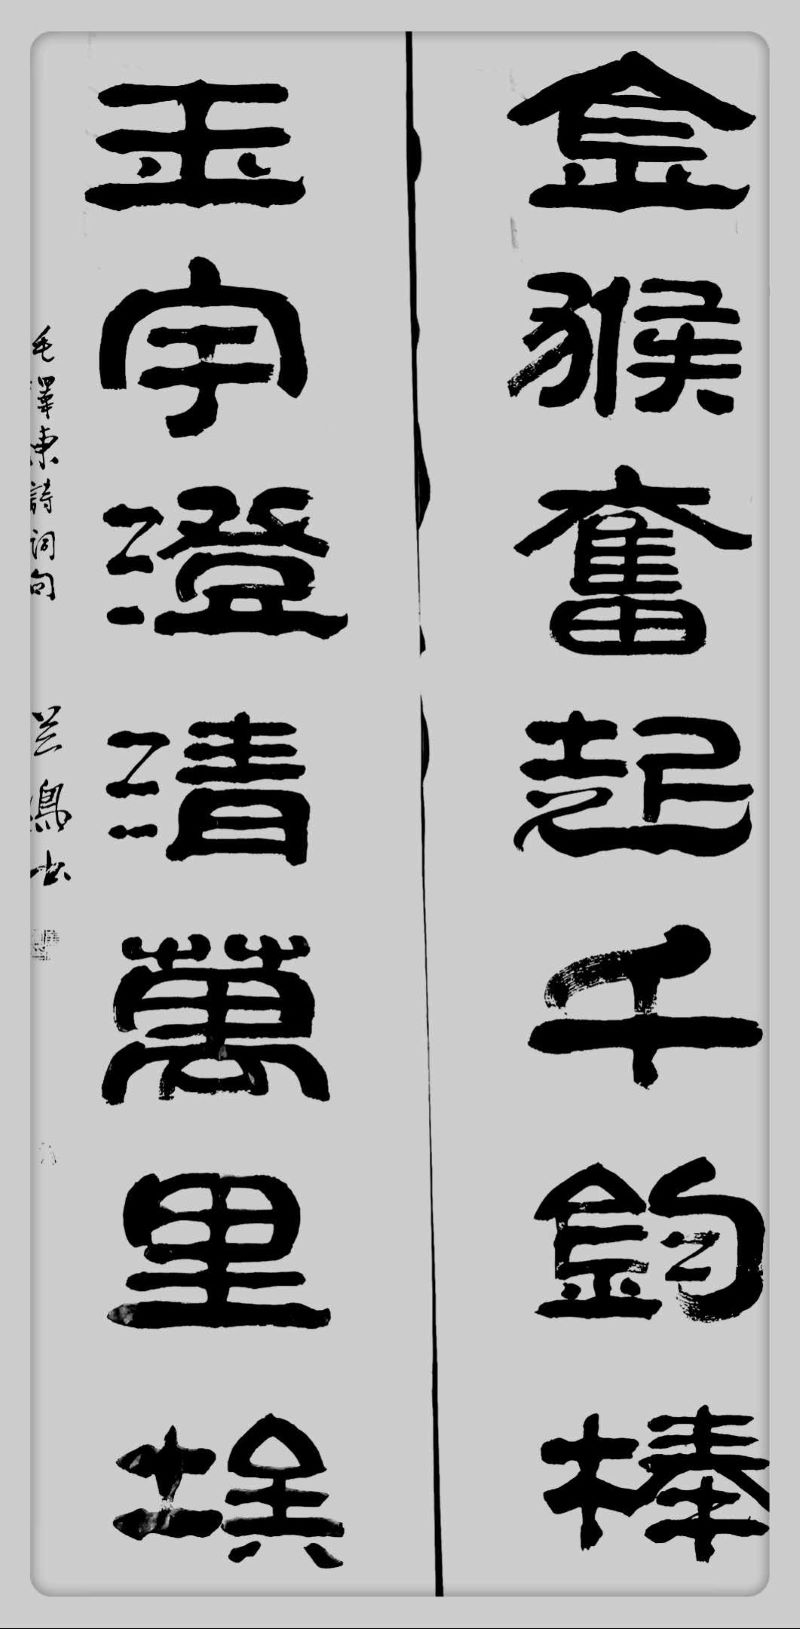 金猴奮起千鈞棒
玉宇澄清萬里埃
毛澤東詩詞句